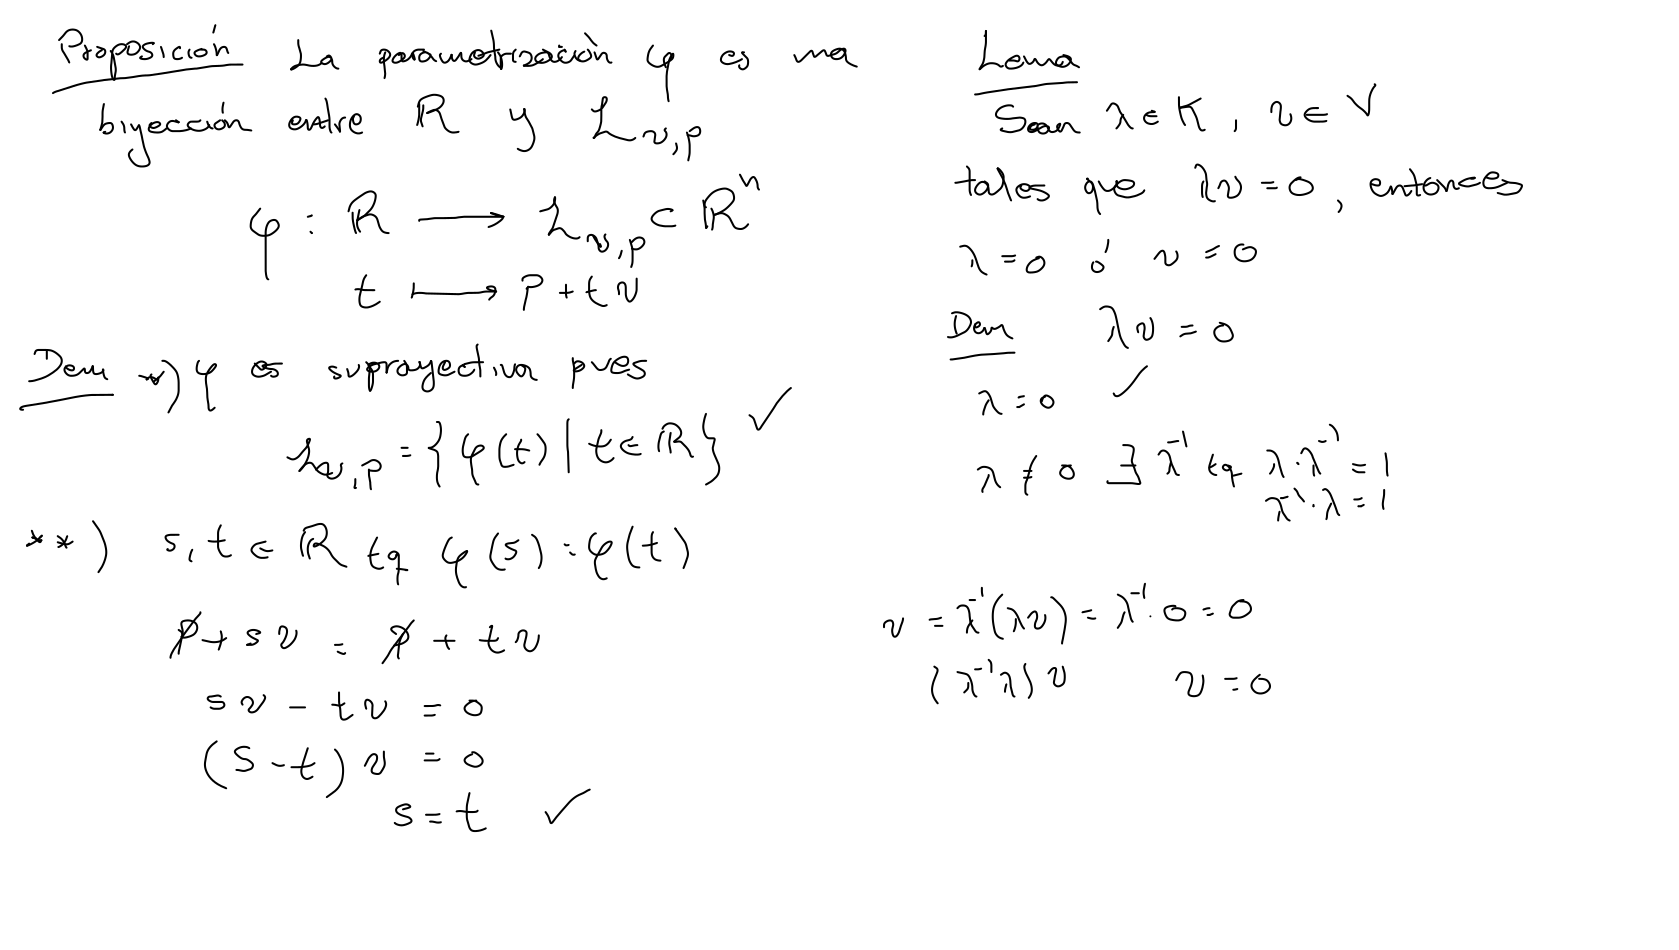 Proposición La parametrización φ es una
biyección entre ℝ y L_{v,p}
φ : ℝ ⟶ L_{v,p} ⊂ ℝⁿ
t ⟼ p + t v
Dem *) φ es suprayectiva pues
L_{v,p} = { φ(t) | t ∈ ℝ } ✓
**) s, t ∈ ℝ tq φ(s) = φ(t)
p + s v = p + t v
s v - t v = 0
(s - t) v = 0
s = t ✓
Lema
Sean λ ∈ K, v ∈ V
tales que λv = 0, entonces
λ = 0 ó v = 0
Dem λ v = 0
λ = 0 ✓
λ ≠ 0 ∃ λ⁻¹ tq λ·λ⁻¹ = 1
λ⁻¹·λ = 1
v = λ⁻¹(λv) = λ⁻¹·0 = 0
(λ⁻¹λ) v v = 0